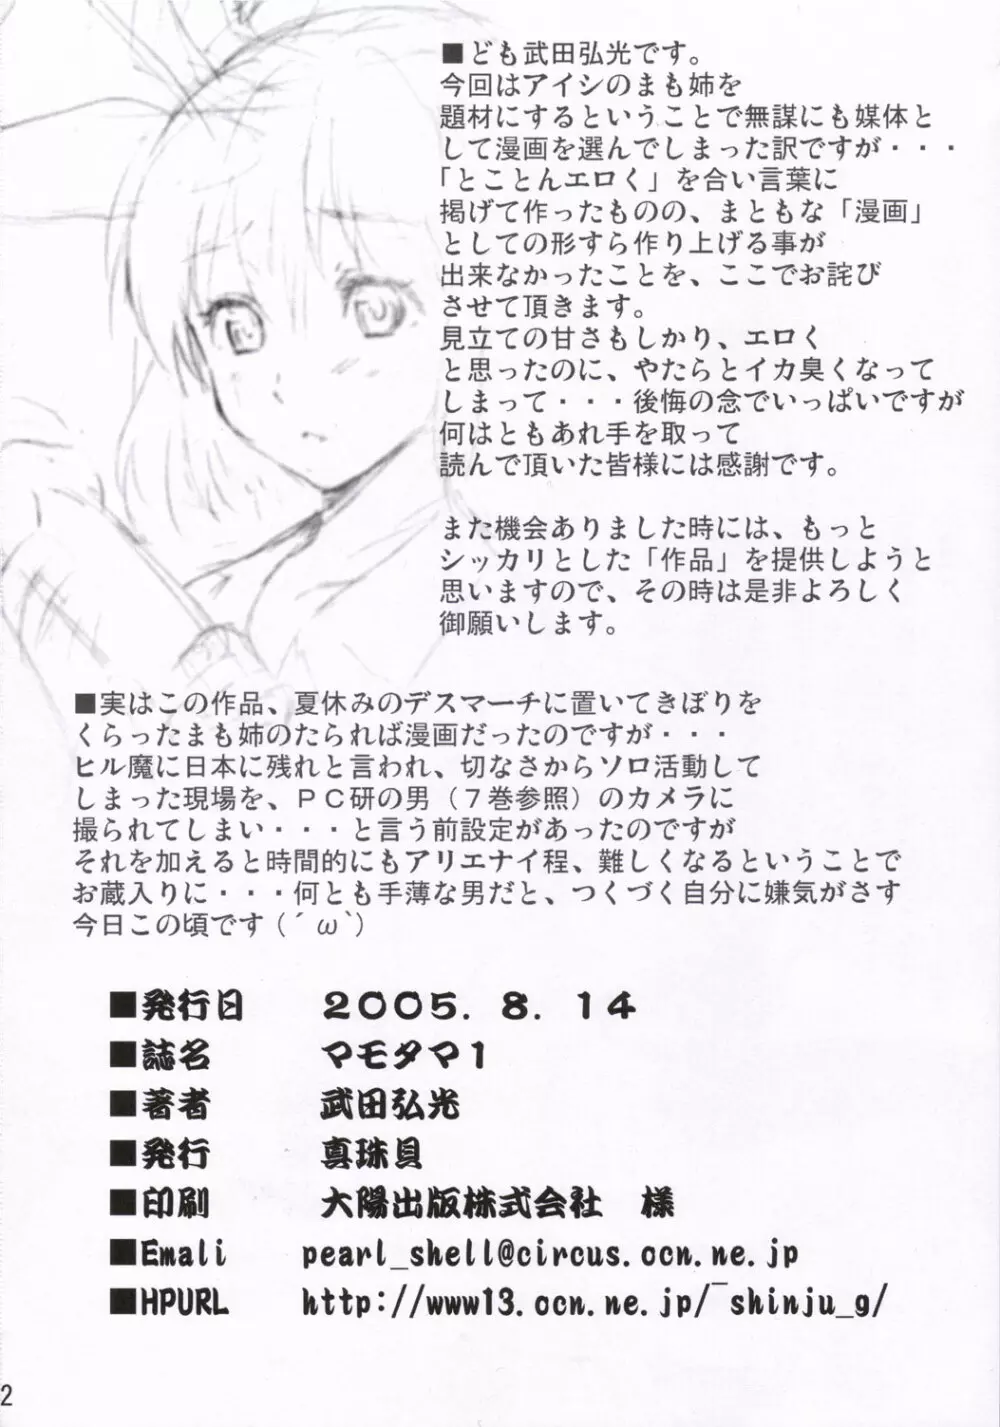 ■ども武田弘光です。
今回はアイシのまも姉を
題材にするということで無謀にも媒体と
して漫画を選んでしまった訳ですが・・・
「とことんエロく」を合い言葉に
掲げて作ったものの、まともな「漫画」
としての形すら作り上げる事が
出来なかったことを、ここでお詫び
させて頂きます。
見立ての甘さもしかり、エロく
と思ったのに、やたらとイカ臭くなって
しまって・・・後悔の念でいっぱいですが
何はともあれ手を取って
読んで頂いた皆様には感謝です。
また機会ありました時には、もっと
シッカリとした「作品」を提供しようと
思いますので、その時は是非よろしく
御願いします。
■実はこの作品、夏休みのデスマーチに置いてきぼりを
くらったまも姉のたられば漫画だったのですが・・・
ヒル魔に日本に残れと言われ、切なさからソロ活動して
しまった現場を、ＰＣ研の男（７巻参照）のカメラに
撮られてしまい・・・と言う前設定があったのですが
それを加えると時間的にもアリエナイ程、難しくなるということで
お蔵入りに・・・何とも手薄な男だと、つくづく自分に嫌気がさす
今日この頃です（´ω`）
■発行日　２００５．８．１４
■誌名　マモタマ１
■著者　武田弘光
■発行　真珠貝
■印刷　大陽出版株式会社　様
■Emali　pearl_shell@circus.ocn.ne.jp
■HPURL　http://www13.ocn.ne.jp/‾shinju_g/
2